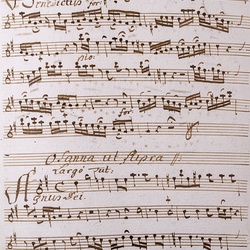 Benedictus forte
pio:
Osanna ut supra
Largo
Agnus Dei.